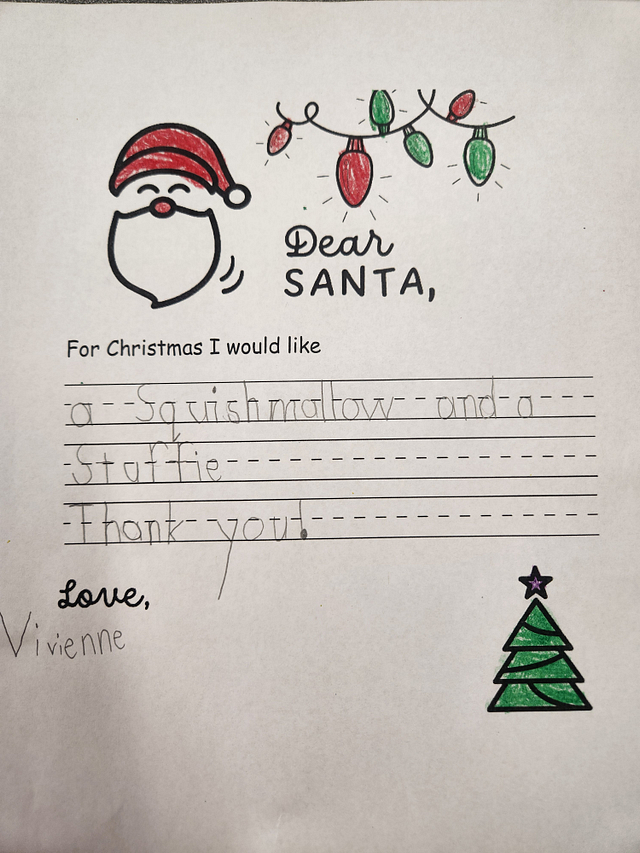 Dear
SANTA,
For Christmas I would like
a Squishmallow and a
Stuffie
Thank you!
Love,
Vivienne